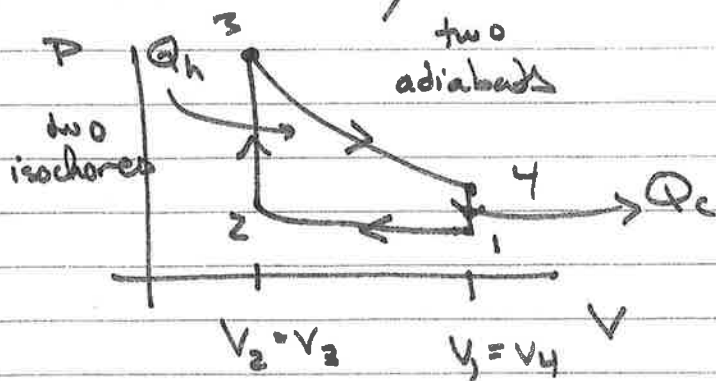 3
two
adiabats
P
Qh
two
isochores
4
Qc
2
1
V2 = V3
V1 = V4
V